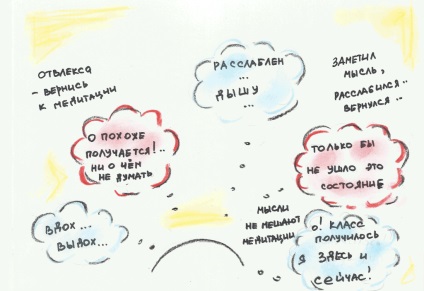 ОТВЛЕКСЯ
- ВЕРНИСЬ
К МЕДИТАЦИИ
РАССЛАБЛЕН
...
ДЫШУ
...
ЗАМЕТИЛ
МЫСЛЬ,
РАССЛАБИЛСЯ..
ВЕРНУЛСЯ..
О ПОХОЖЕ
ПОЛУЧАЕТСЯ!..
НИ О ЧЁМ
НЕ ДУМАТЬ
ТОЛЬКО БЫ
НЕ УШЛО ЭТО
СОСТОЯНИЕ
ВДОХ...
ВЫДОХ...
МЫСЛИ
НЕ МЕШАЮТ
МЕДИТАЦИИ
О! КЛАСС
ПОЛУЧИЛОСЬ
Я ЗДЕСЬ И
СЕЙЧАС!